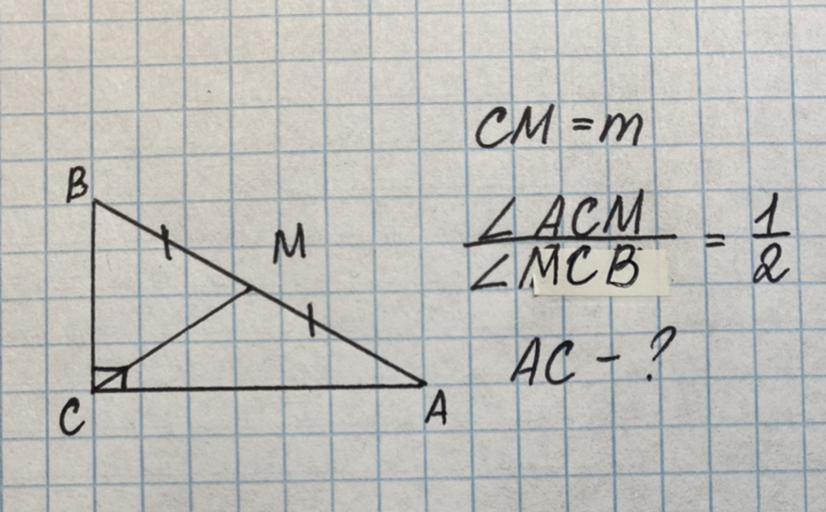 B
M
C
A
CM = m
∠ACM / ∠MCB = 1/2
AC - ?